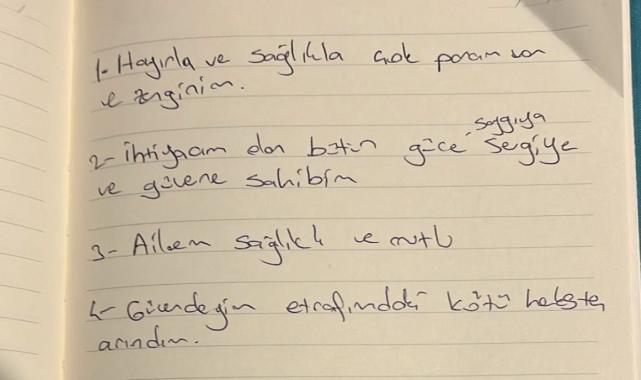 1- Hayırla ve sağlıkla çok param var
ve zenginim.
saygıya
2- ihtiyacım olan bütün güce, sevgiye
ve güvene sahibim
3- Ailem sağlıklı ve mutlu
4- Güvendeyim etrafımdaki kötü
arındım.